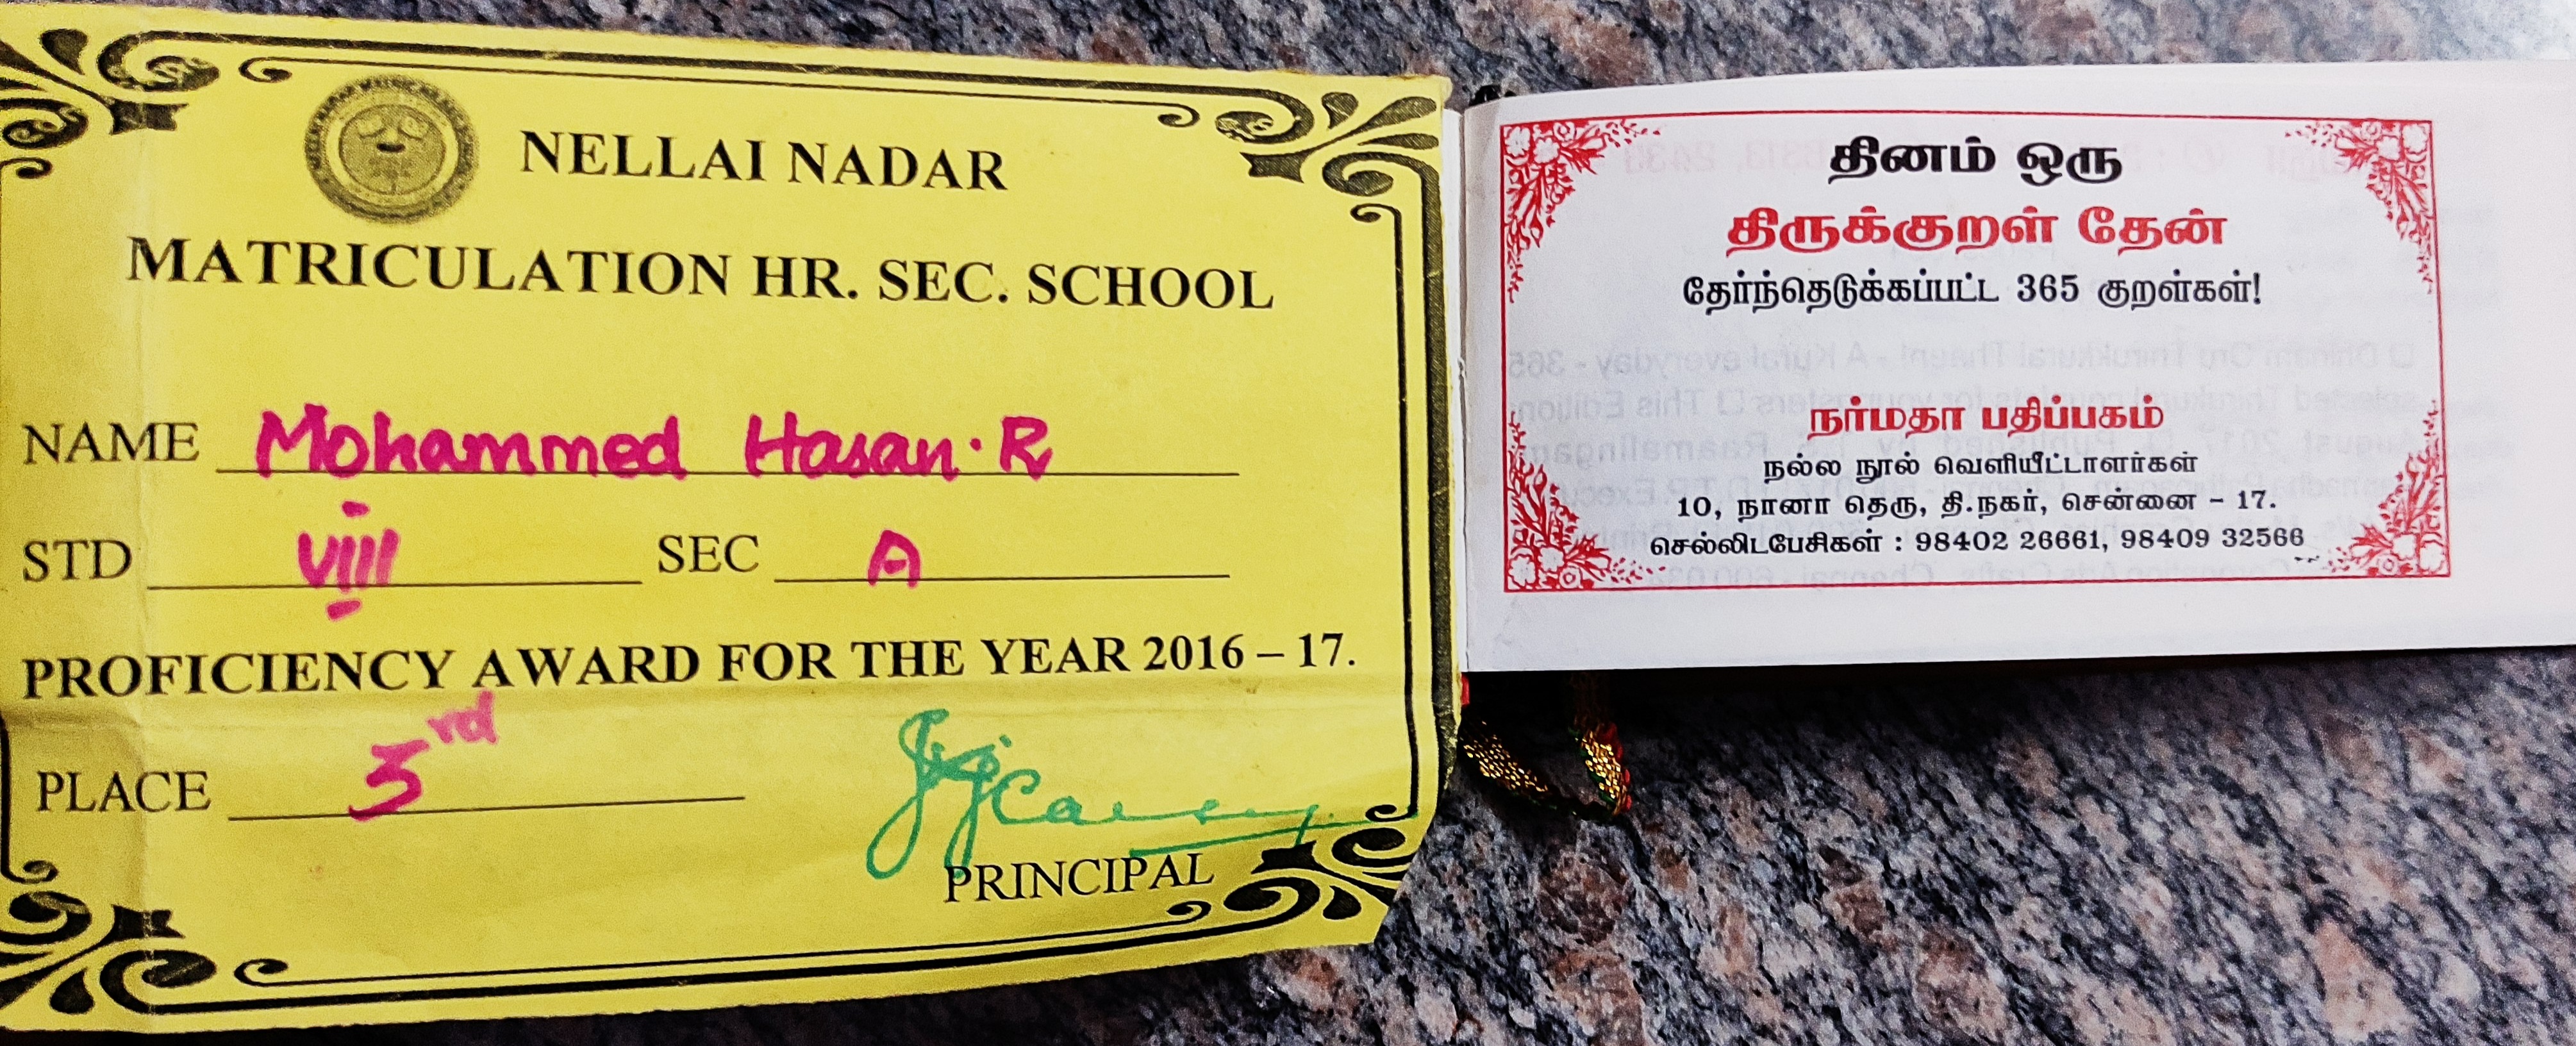 NELLAI NADAR
MATRICULATION HR. SEC. SCHOOL
NAME Mohammed Hasan. R
STD VIII SEC A
PROFICIENCY AWARD FOR THE YEAR 2016 – 17.
PLACE 3rd
PRINCIPAL
தினம் ஒரு
திருக்குறள் தேன்
தேர்ந்தெடுக்கப்பட்ட 365 குறள்கள்!
நர்மதா பதிப்பகம்
நல்ல நூல் வெளியீட்டாளர்கள்
10, நானா தெரு, தி.நகர், சென்னை - 17.
செல்லிடபேசிகள் : 98402 26661, 98409 32566